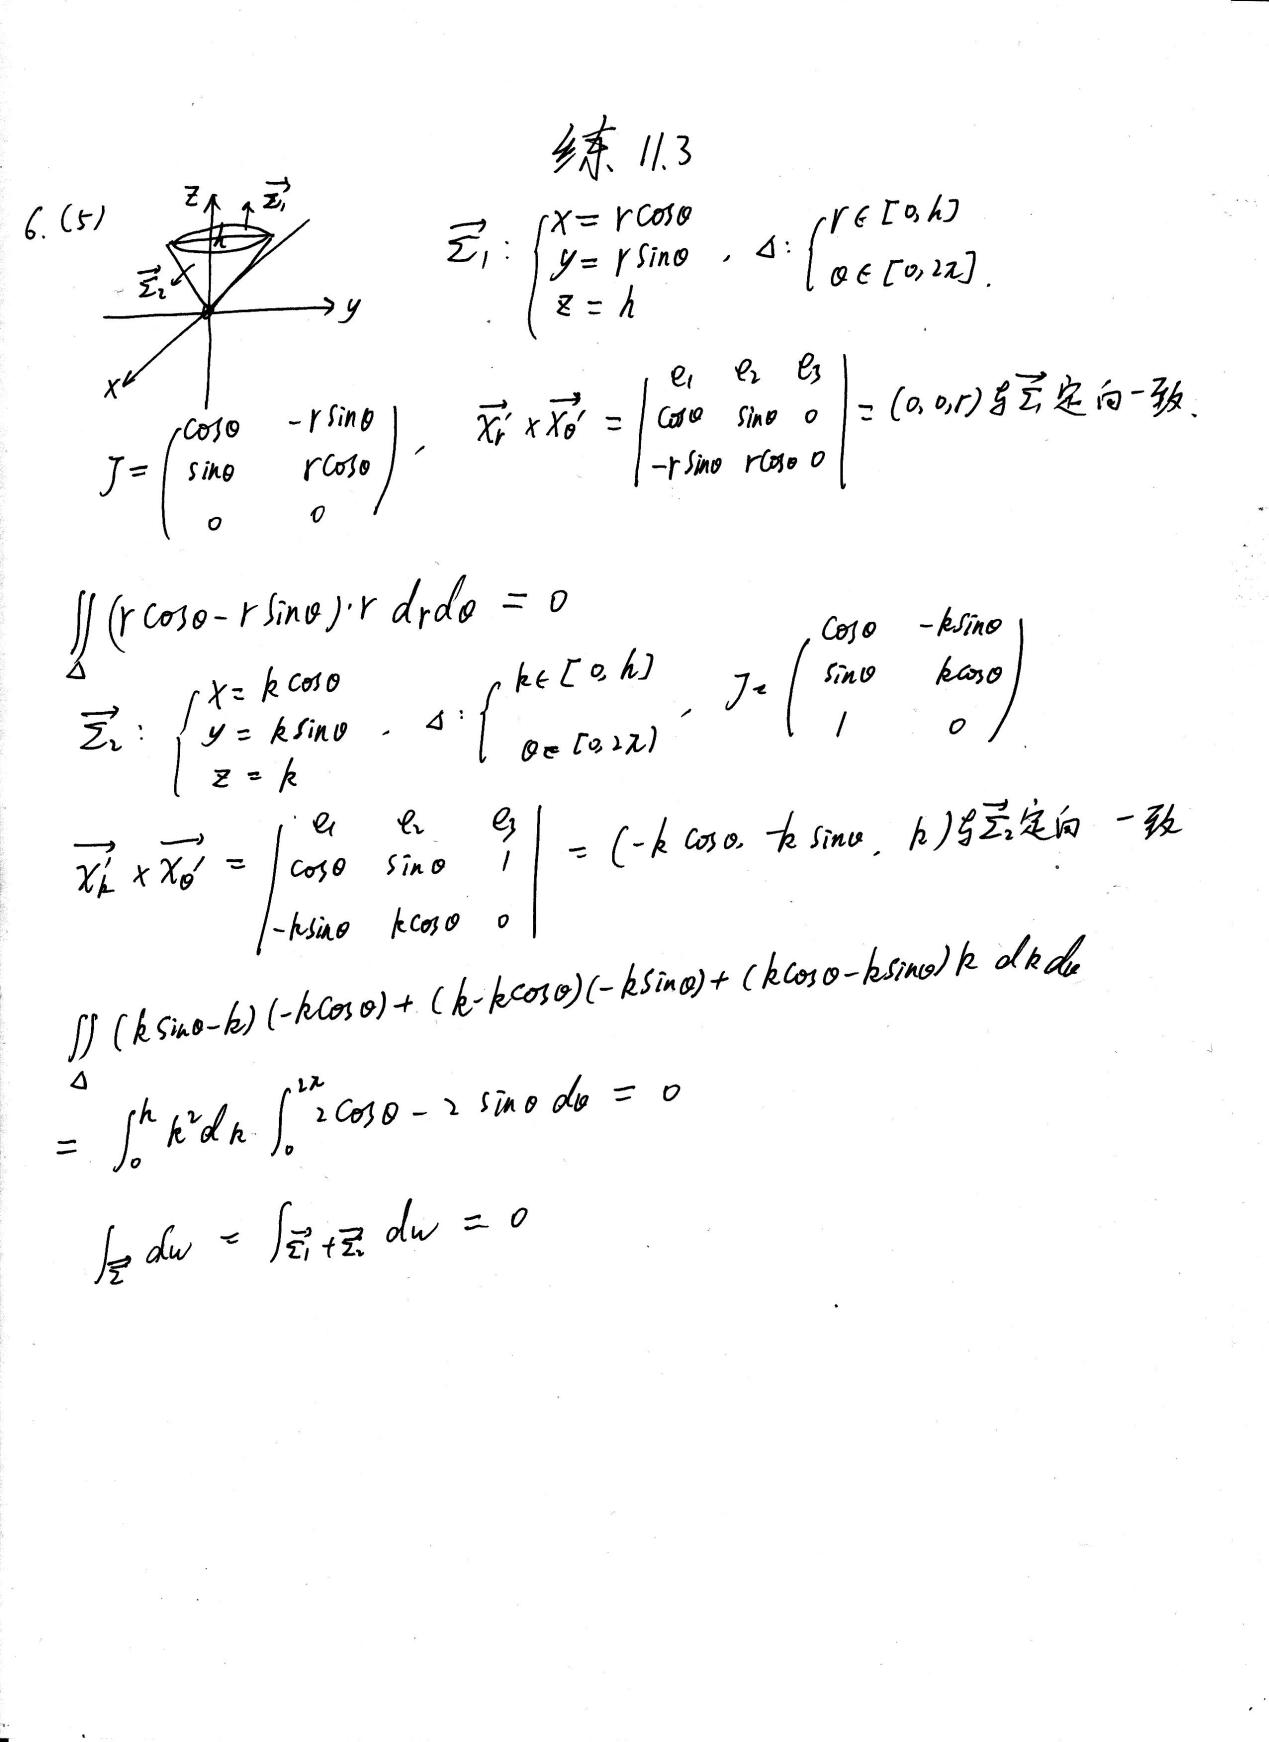 练 11.3
6. (5)
z
Σ⃗₁
h
Σ⃗₂
y
x
Σ⃗₁: { x = r cosθ, y = r sinθ, z = h , Δ: { r ∈ [0, h], θ ∈ [0, 2π].
J = ( cosθ -r sinθ ; sinθ r cosθ ; 0 0 ), X⃗ᵣ' × X⃗_θ' = | e₁ e₂ e₃ ; cosθ sinθ 0 ; -r sinθ r cosθ 0 | = (0, 0, r) 与 Σ⃗₁ 定向一致.
∬_Δ (r cosθ - r sinθ)·r dr dθ = 0
Σ⃗₂: { x = k cosθ, y = k sinθ, z = k , Δ: { k ∈ [0, h], θ ∈ [0, 2π) , J = ( cosθ -k sinθ ; sinθ k cosθ ; 1 0 )
X⃗ₖ' × X⃗_θ' = | e₁ e₂ e₃ ; cosθ sinθ 1 ; -k sinθ k cosθ 0 | = (-k cosθ, -k sinθ, k) 与 Σ⃗₂ 定向 一致
∬_Δ (k sinθ - k)(-k cosθ) + (k - k cosθ)(-k sinθ) + (k cosθ - k sinθ) k dk dθ
= ∫₀^h k² dk ∫₀^2π 2 cosθ - 2 sinθ dθ = 0
∫_Σ⃗ dw = ∫_Σ⃗₁+Σ⃗₂ dw = 0